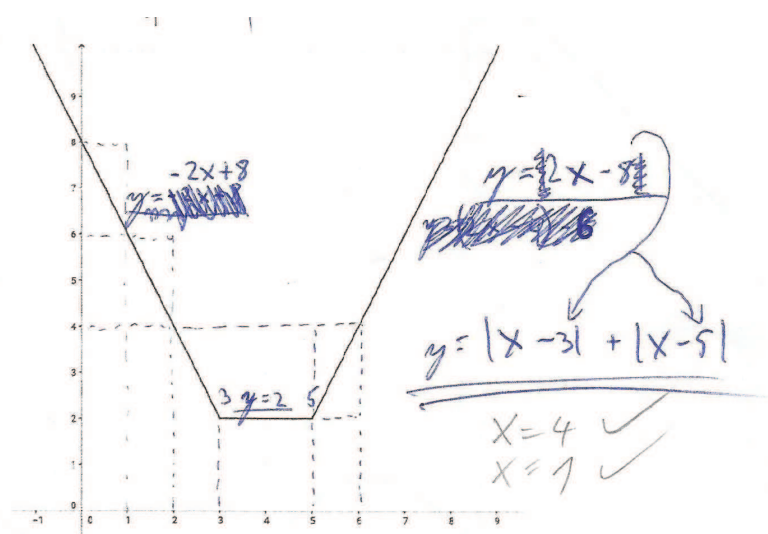 9
8
7
6
5
4
3
2
1
0
-1 0 1 2 3 4 5 6 7 8 9
-2x+8
y=
3 y=2 5
y=|2x-8|
y=|x-3|+|x-5|
x=4 ✓
x=1 ✓